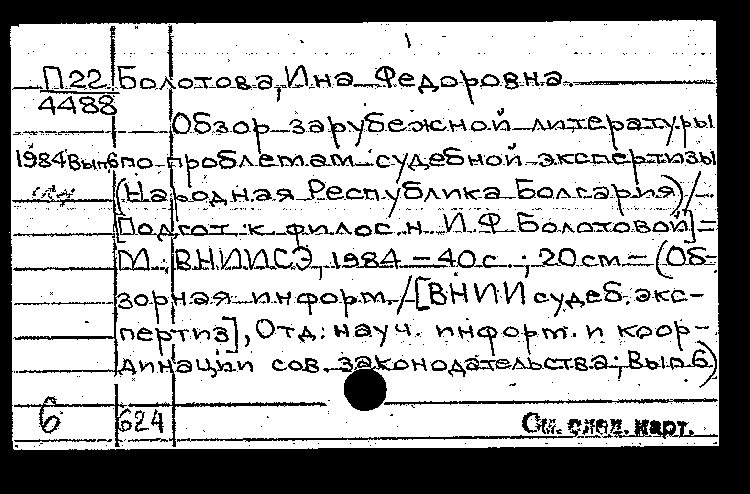 П22 Болотова, Ина Федоровна.
4488
Обзор зарубежной литературы
1984 Вып.6 по проблемам судебной экспертизы
(Народная Республика Болгария) /
[Подгот. к. филос. н. И.Ф. Болотовой] =
М.: ВНИИСЭ, 1984 – 40 с. ; 20 см – (Об-
зорная информ. / [ВНИИ судеб. экс-
пертиз], Отд. науч. информ. и коор-
динации сов. законодательства; Вып. 6)
6 624
См. след. карт.